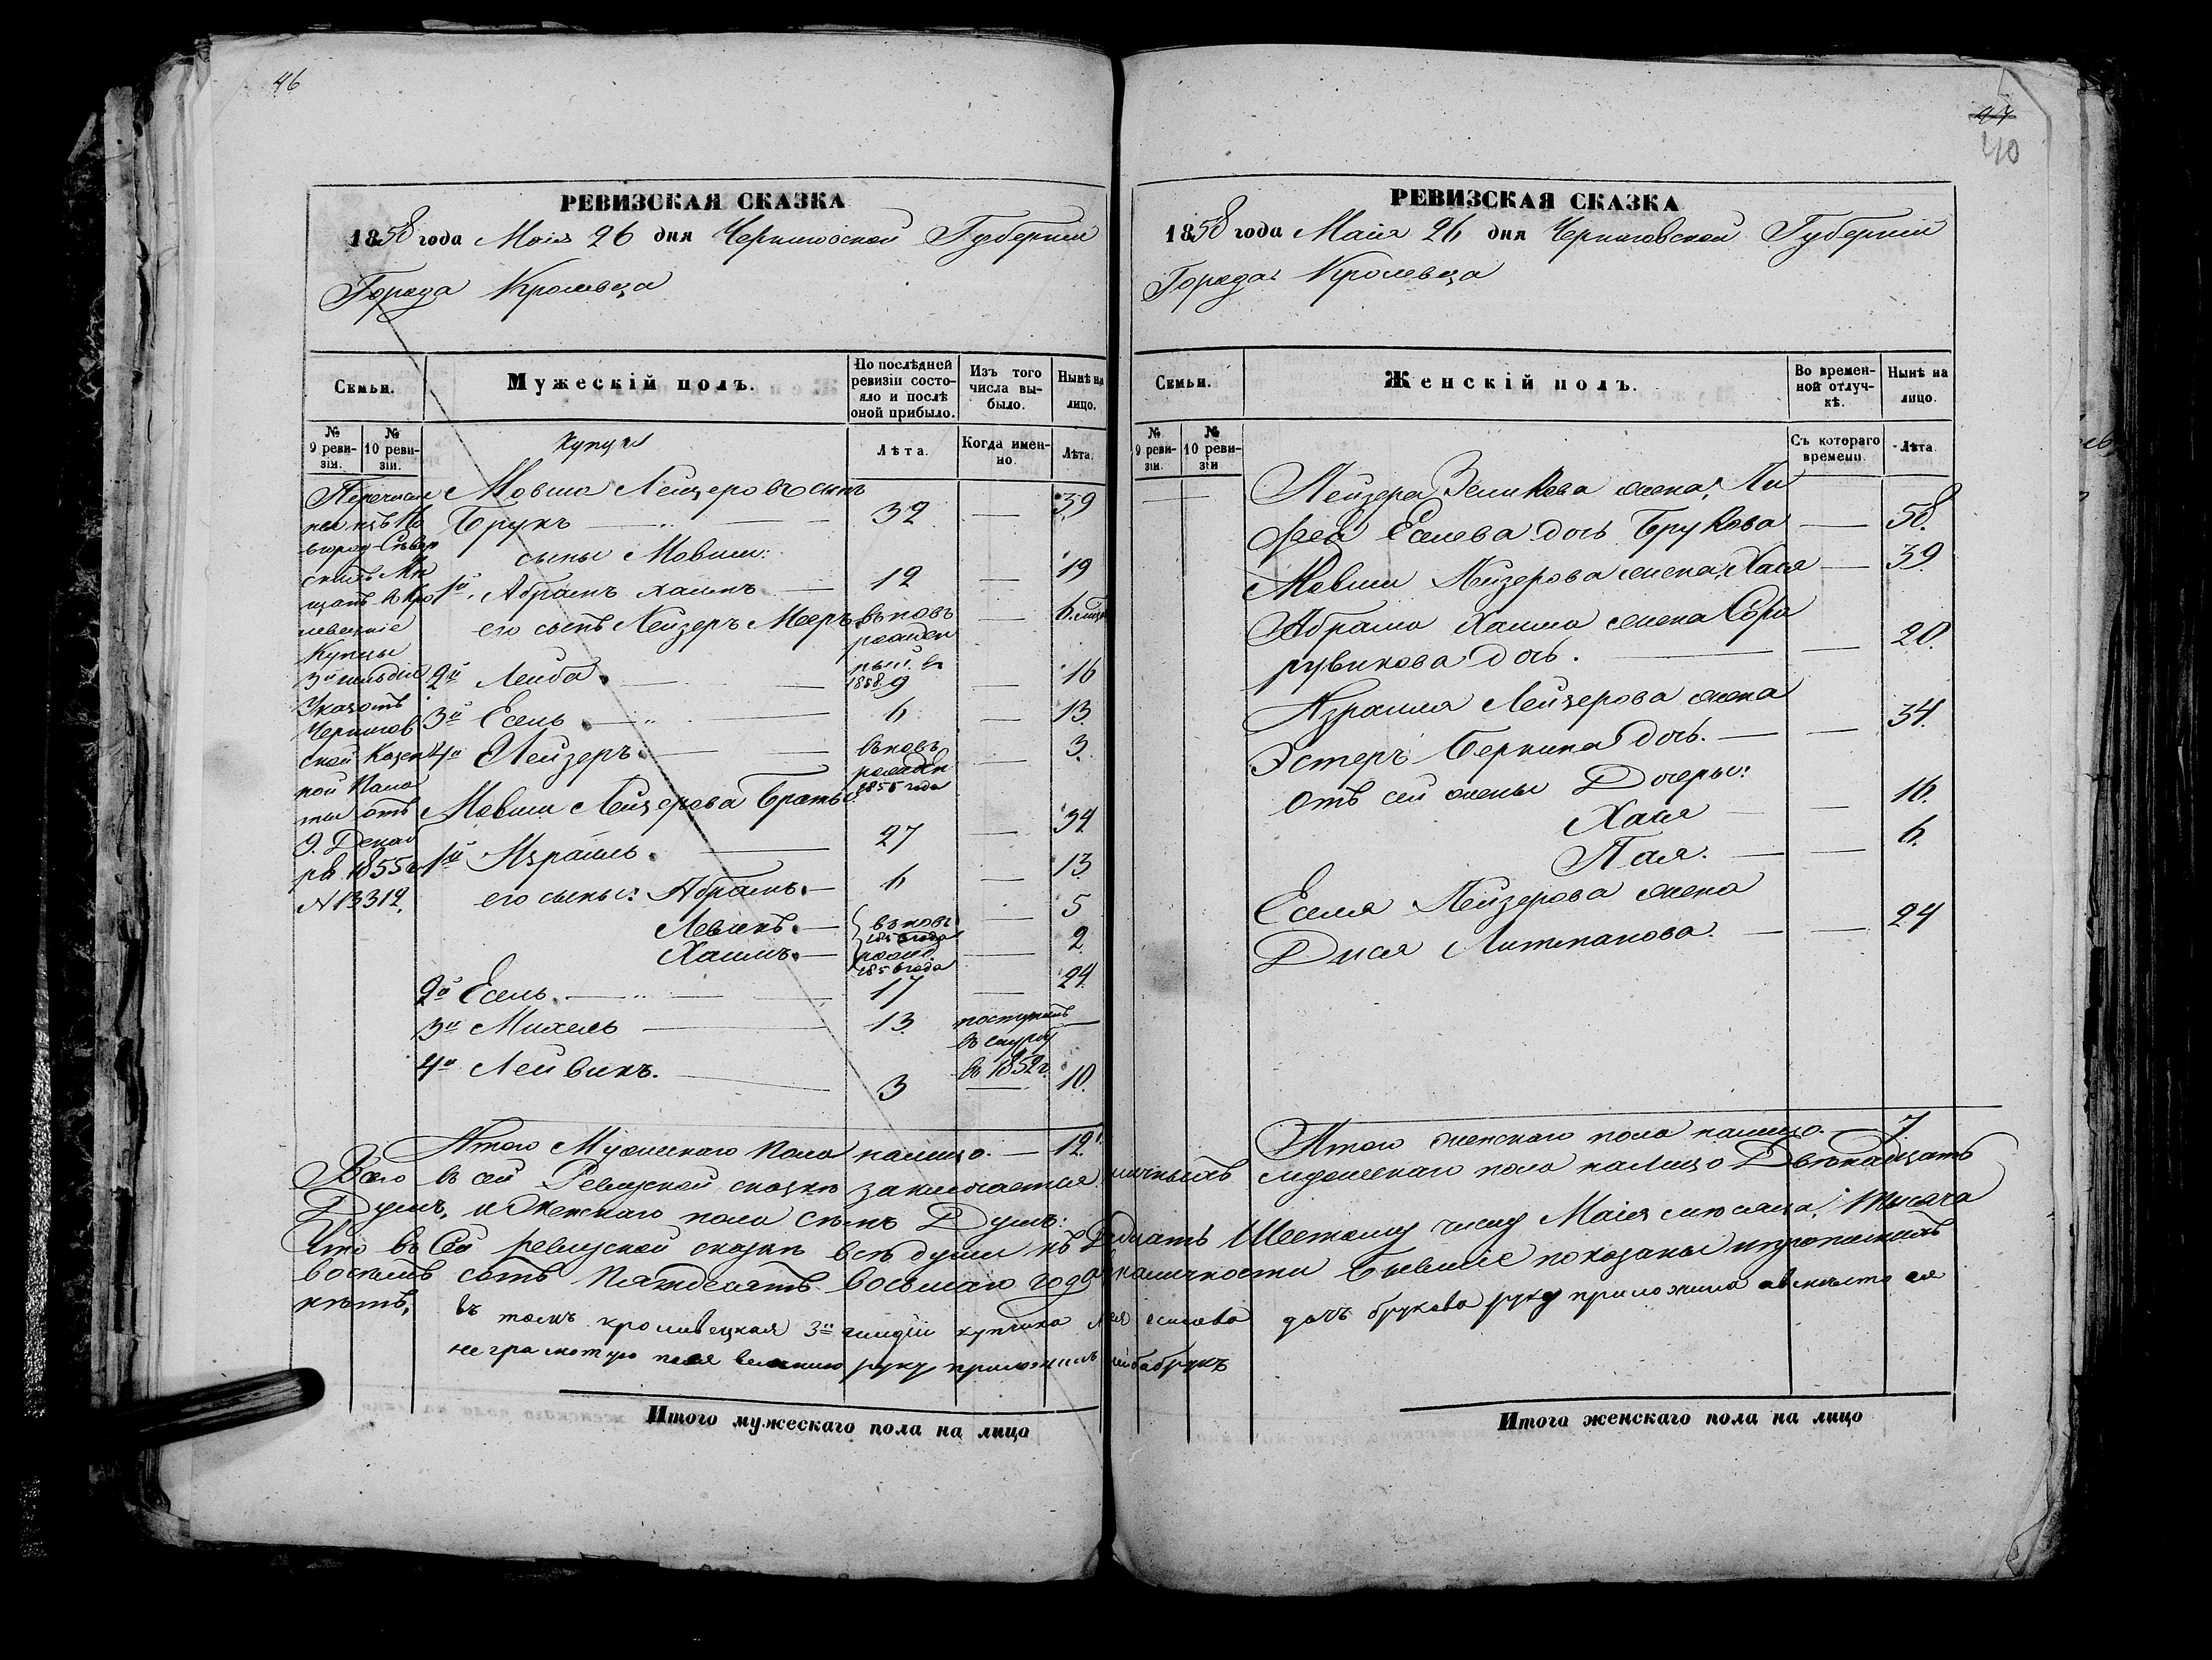 46
РЕВИЗСКАЯ СКАЗКА
1858 года Маія 26 дня Черниговской Губерніи
Города Кролевца
Семьи.
Мужескій полъ.
По послѣдней ревизіи состояло и послѣ оной прибыло.
Изъ того числа выбыло.
Нынѣ на лицо.
№ 9 ревизіи.
№ 10 ревизіи.
Лѣта.
Когда именно.
Лѣта.
Купцы
Перечислены изъ Новгород-Сѣверскихъ Мѣщанъ въ Кролевецкіе Купцы 3й гильдіи Указомъ Черниговской Казенной Палаты отъ 9. Декабря 1855 г. № 13312.
Мовша Лейзеровъ сынъ
Брукъ 32 39
сыны Мовши:
1й Абрамъ Хаимъ 12 19
его сынъ Лейзеръ Мееръ вновь рожден 1858. 6. мѣся
2й Лейба 9 16
3й Есель 6 13.
4й Лейзеръ вновь рожден 1855 года 3.
Мовши Лейзерова Братья:
1й Израиль 27 34
его сыны: Абрамъ 6 13
Левикъ вновь 5
Хаимъ рожд. 1856 года 2
2й Есель 17 24.
3й Михель 13. поступилъ въ службу в 1852 г.
4й Лейвикъ. 3 10.
Итого Мужескаго Пола налицо. 12.
РЕВИЗСКАЯ СКАЗКА
1858 года Маія 26 дня Черниговской Губерніи
Города Кролевца
47
40
Семьи.
Женскій полъ.
Во временной отлучкѣ.
Нынѣ на лицо.
№ 9 ревизіи.
№ 10 ревизіи
Съ котораго времени.
Лѣта
Лейзера Зеликова жена,
Еселева дочь Брукова 58.
Мовши Лейзерова жена, Хася 39.
Абрама Хаима жена Сора
рувинова дочь. 20.
Израиля Лейзерова жена
Эстеръ Беркина дочь. 34.
Отъ сей жены Дочеры:
Хая 16.
Пая. 6.
Еселя Лейзерова жена
Дися Литманова. 24
Итого женскаго пола налицо. 7
Всего в сей Ревизской сказкѣ заключается личныхъ мужескаго пола налицо Двѣнадцать
Душъ, и Женскаго пола сѣмъ Душъ:
Что въ Сей ревизской сказкѣ всѣ души къ Двадцать Шестому числу Маія мѣсяца, тысяча
восемь сотъ Пятдесятъ восьмаго года в наличности бывшіе показаны и прописныхъ
нѣтъ,
въ томъ кролевецкая 3й гилдіи купчиха еселова дочь брукова руку приложила а вмѣсто ея
неграмотную по ея велению руку приложилъ лейба брукъ
Итого мужескаго пола на лицо
Итого женскаго пола на лицо